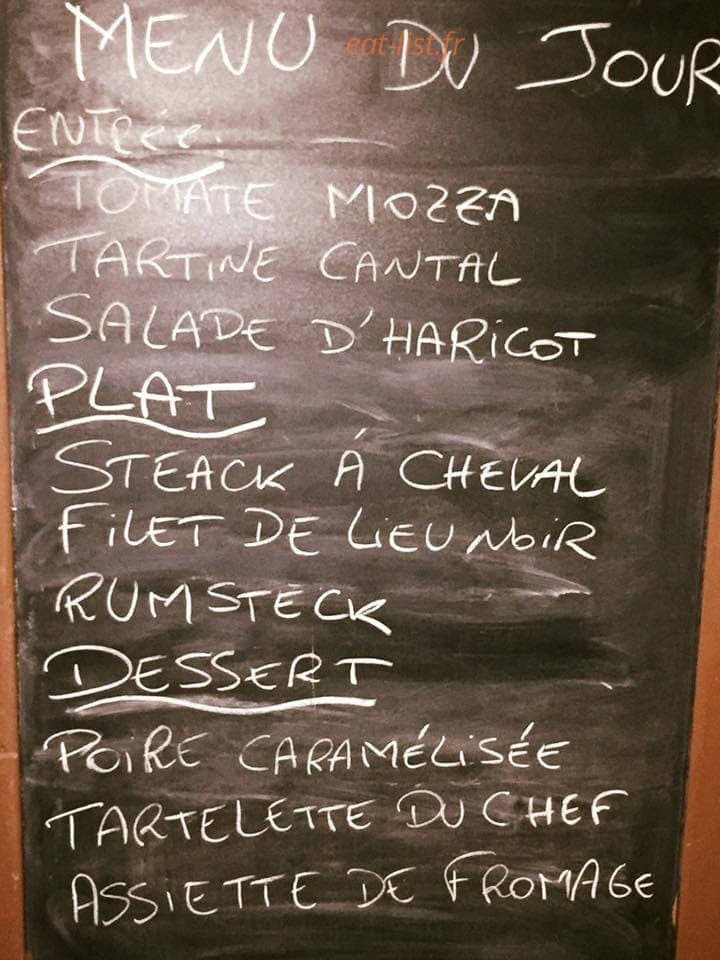 MENU DU JOUR
eat-list.fr
ENTRÉE:
TOMATE MOZZA
TARTINE CANTAL
SALADE D'HARICOT
PLAT
STEACK Á CHEVAL
FILET DE LIEU NOIR
RUMSTECK
DESSERT
POIRE CARAMÉLISÉE
TARTELETTE DU CHEF
ASSIETTE DE FROMAGE